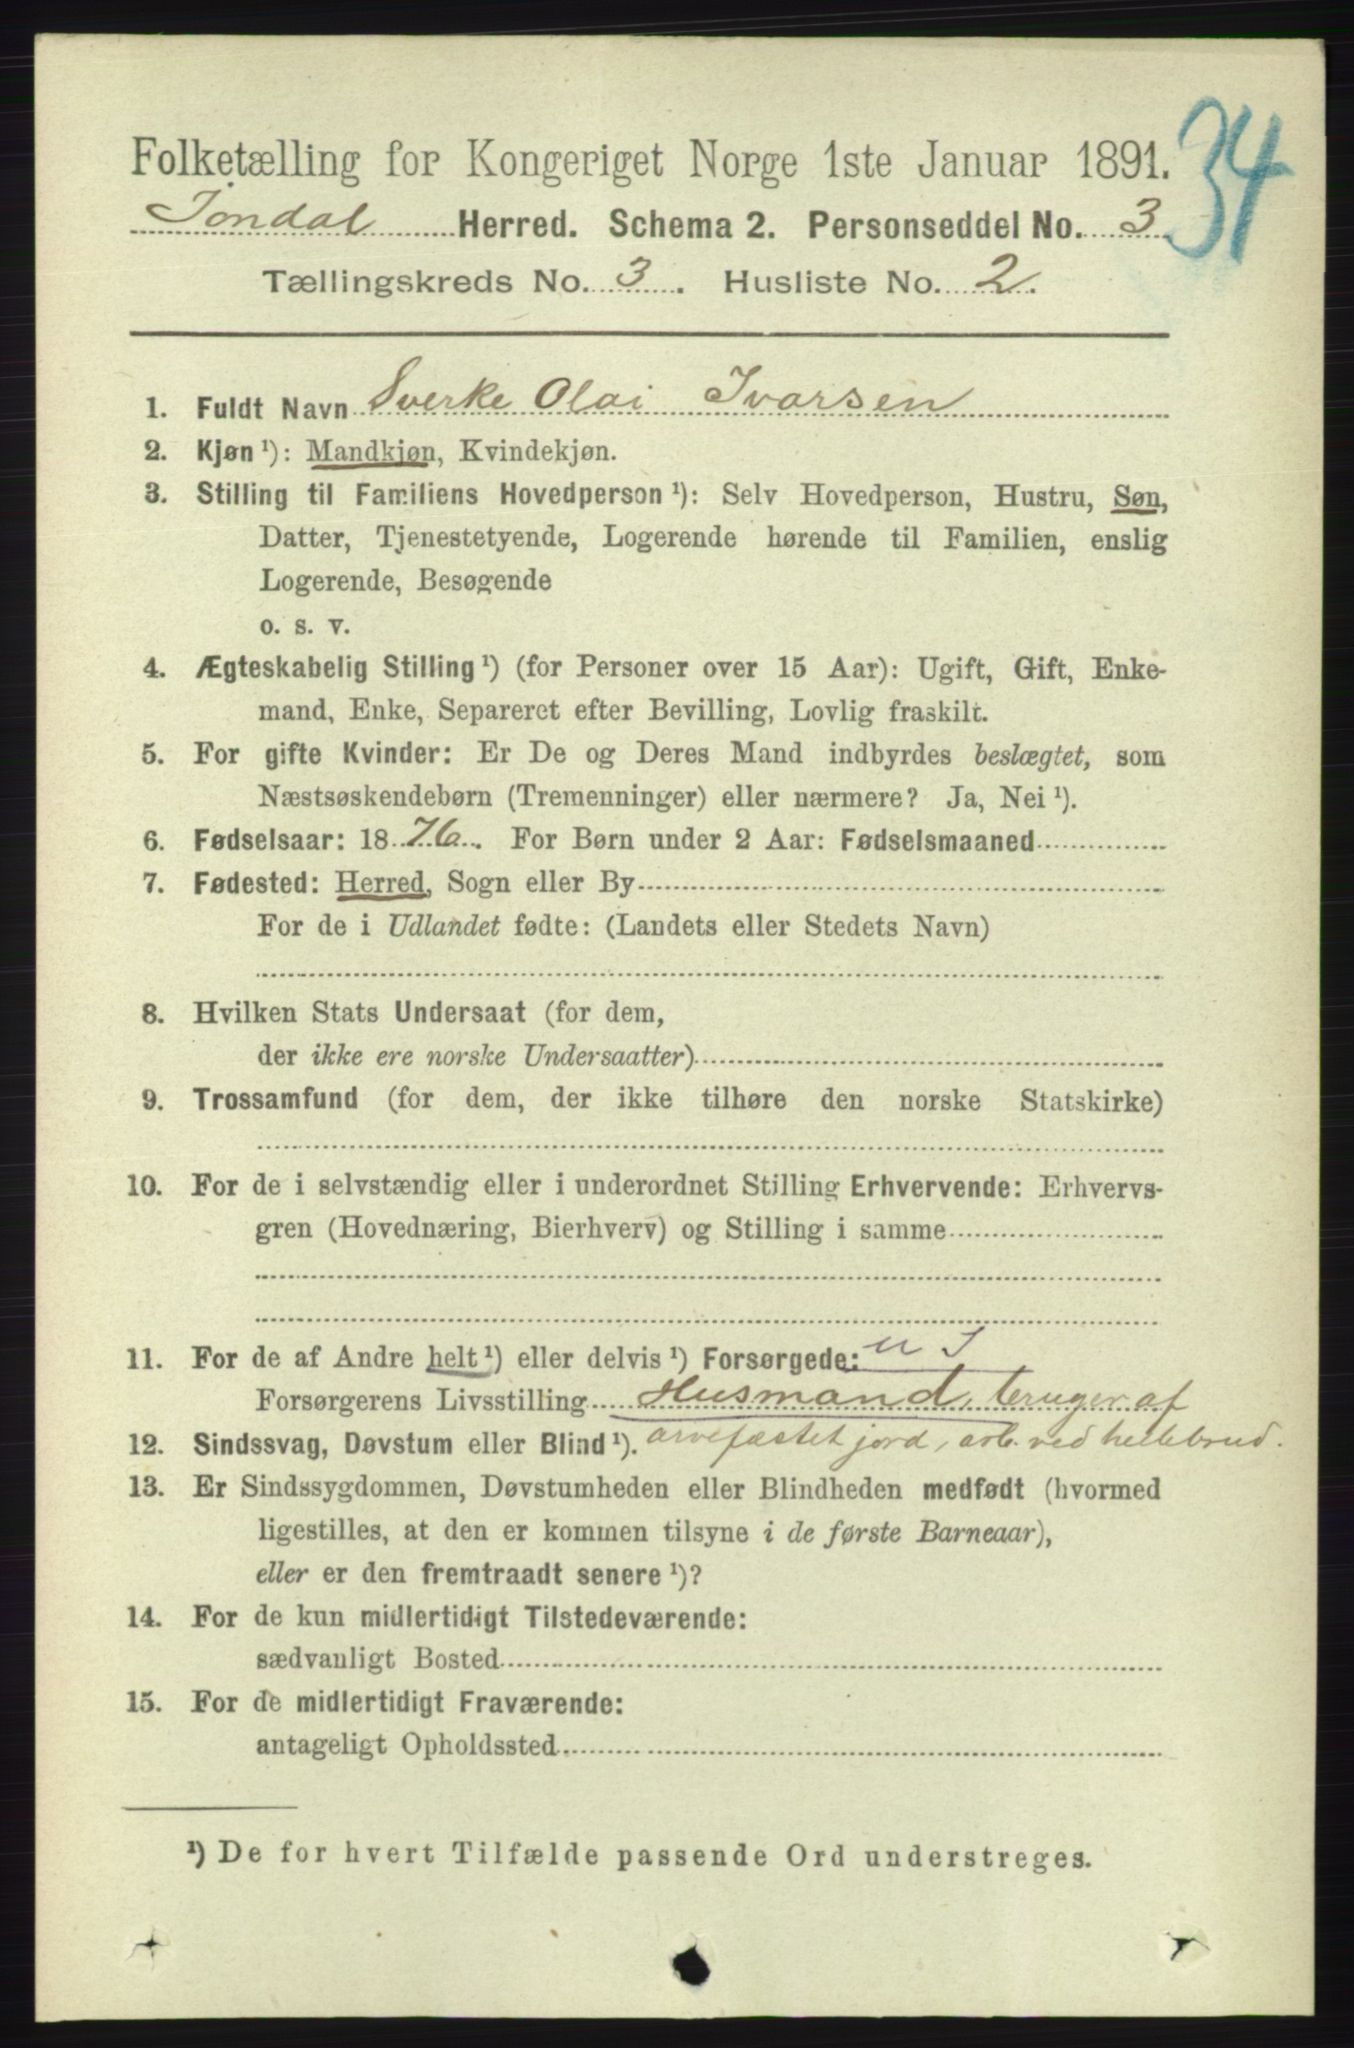 34
Folketælling for Kongeriget Norge 1ste Januar 1891.
Jondal Herred. Schema 2. Personseddel No. 3
Tællingskreds No. 3. Husliste No. 2.
1. Fuldt Navn Sverke Olai Ivarsen
2. Kjøn ¹): Mandkjøn, Kvindekjøn.
3. Stilling til Familiens Hovedperson ¹): Selv Hovedperson, Hustru, Søn,
Datter, Tjenestetyende, Logerende hørende til Familien, enslig
Logerende, Besøgende
o. s. v.
4. Ægteskabelig Stilling ¹) (for Personer over 15 Aar): Ugift, Gift, Enke-
mand, Enke, Separeret efter Bevilling, Lovlig fraskilt.
5. For gifte Kvinder: Er De og Deres Mand indbyrdes beslægtet, som
Næstsøskendebørn (Tremenninger) eller nærmere? Ja, Nei ¹).
6. Fødselsaar: 1876. For Børn under 2 Aar: Fødselsmaaned
7. Fødested: Herred, Sogn eller By
For de i Udlandet fødte: (Landets eller Stedets Navn)
8. Hvilken Stats Undersaat (for dem,
der ikke ere norske Undersaatter)
9. Trossamfund (for dem, der ikke tilhøre den norske Statskirke)
10. For de i selvstændig eller i underordnet Stilling Erhvervende: Erhvervs-
gren (Hovednæring, Bierhverv) og Stilling i samme
11. For de af Andre helt ¹) eller delvis ¹) Forsørgede:
Forsørgerens Livsstilling Husmand, bruger af
12. Sindssvag, Døvstum eller Blind ¹). arvefæstet jord, arb. ved hellebrud.
13. Er Sindssygdommen, Døvstumheden eller Blindheden medfødt (hvormed
ligestilles, at den er kommen tilsyne i de første Barneaar),
eller er den fremtraadt senere ¹)?
14. For de kun midlertidigt Tilstedeværende:
sædvanligt Bosted
15. For de midlertidigt Fraværende:
antageligt Opholdssted
¹) De for hvert Tilfælde passende Ord understreges.